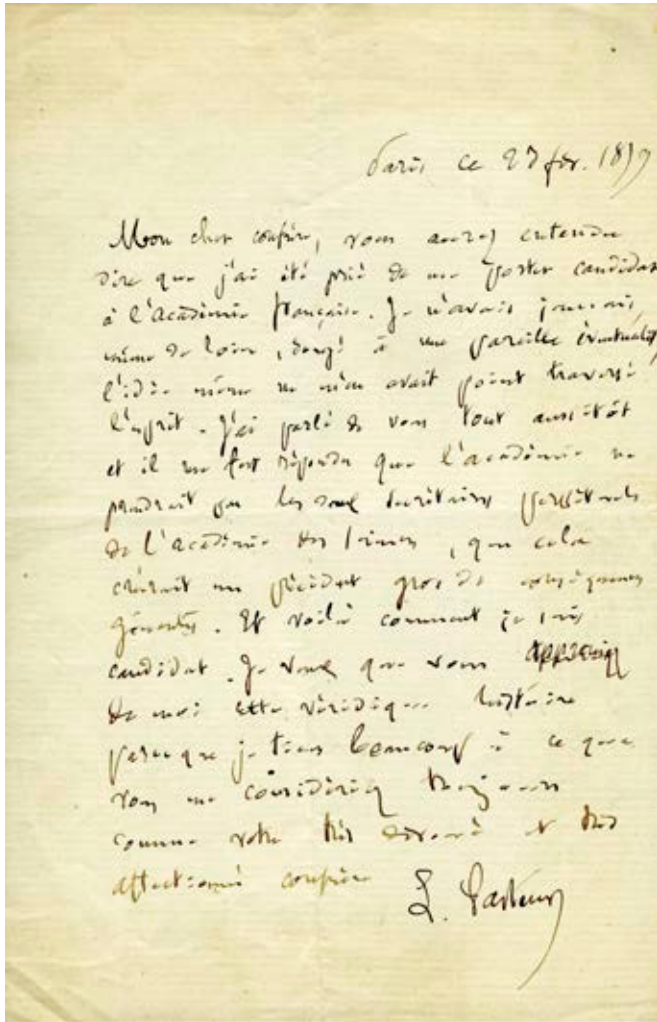 Paris ce 27 fév. 18
Mon cher confrère, vous aurez entendu
dire que j'ai été prié de me porter candidat
à l'Académie française. Je n'avais jamais,
même de loin, songé à une pareille éventualité,
l'idée même ne m'en avait point traversé
l'esprit. J'ai parlé de vous tout aussitôt
et il me fut répondu que l'académie ne
prendrait pas les deux secrétaires perpétuels
de l'académie des sciences, que cela
créerait un précédent gros de conséquences
gênantes. Et voilà comment je suis
candidat. Je veux que vous appreniez
de moi cette véridique histoire
parce que je tiens beaucoup à ce que
vous me considériez toujours
comme votre très dévoué et très
affectionné confrère
L. Pasteur